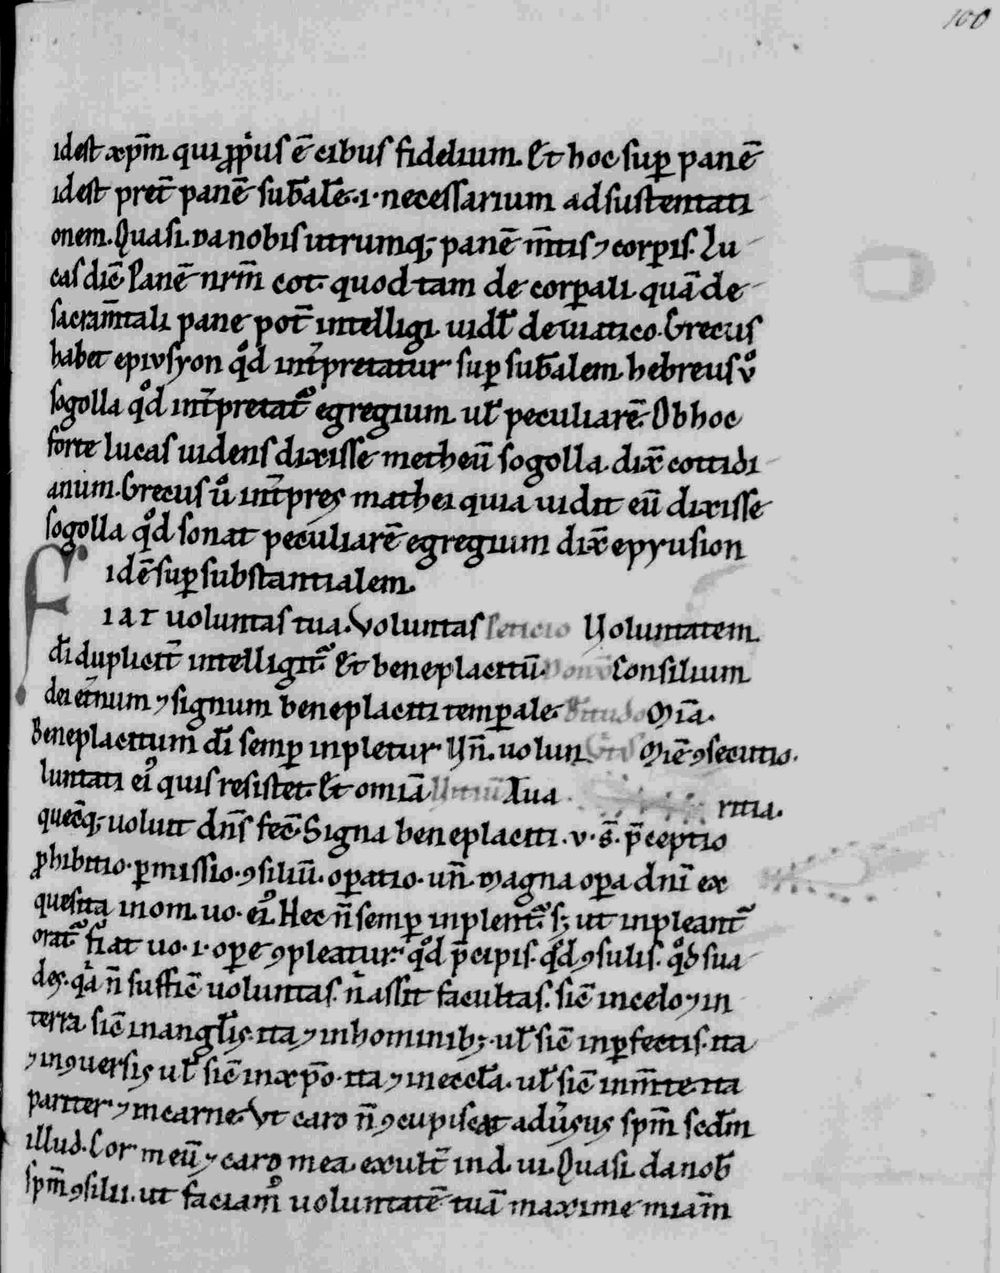 100
idest xp̄m qui ꝓp̓us ē cibus fidelium. Et hoc suꝑ panē
idest pret̄ panē sub̄alē .i. necessarium ad sustentati
onem. Quasi. da nobis utrumq; panē m̄tis ⁊ corꝑis. Lu
cas dic̄ Panē nr̄m cot. quod tam de corꝑali quā de
sacram̄tali pane pot̄ intelligi uidl̄ de uiatico. Grecus
habet epiusyon qᵒd int̄pretatur suꝑ sub̄alem hebreus ůͦ
sogolla qᵒd int̄pretat᷑ egregium ul̄ peculiarē. Ob hoc
forte lucas uidens dixisse matheū sogolla dix̄ cottidi
anum. Grecus ůͦ int̄pres mathei quia uidit eū dixisse
sogolla qᵒd sonat peculiarē egregium dix̄ epyusion
idē suꝑsubstantialem.
Fiat uoluntas tua. Voluntas Peticio Voluntatem
dī duplicit̄ intelligit᷑ Et beneplacitū. Donū Consilium
dei et̄num ⁊ signum beneplaciti temꝑale. Bītudo Mīa.
Beneplacitum dī semꝑ inpletur. Vn̄. uolun Mīe ꝯsecutio.
luntati ei᷒ quis resistet. Et omīa Uitiū Aua ritia.
quecq; uoluit dn̄s fec̄. Signa beneplaciti .v. s̄. p̄ceptio
ꝓhibitio. ꝑmissio. ꝯsiliū. oꝑatio. un̄. Magna oꝑa dnī ex
quesita in om. uo. ei᷒. Hec n̄ semꝑ inplent᷑. s; ut inpleant᷑
orat᷑ fiat uo. i. oꝑe ꝯpleatur. qᵒd p̄cipis. qᵒd ꝯsulis. qᵒd sua
des. qᵃ n̄ suffic̄ uoluntas. n̓ assit facultas. sic̄ in celo ⁊ in
terra. sic̄ in angl̄is. ita ⁊ in hominib;. ul̄ sic̄ in ꝑfectis. ita
⁊ in ꝯuersis ul̄ sic̄ in xp̄o. ita ⁊ in eccl̄a. ul̄ sic̄ in m̄te ita
pariter ⁊ in carne. Vt caro n̄ ꝯcupiscat adůsus sp̄m scdm̄
illud. Cor meū ⁊ caro mea. exult̄ in d. ui. Quasi. da nob̄
sp̄m ꝯsilii. ut faciam᷒ uoluntatē tuā maxime miām